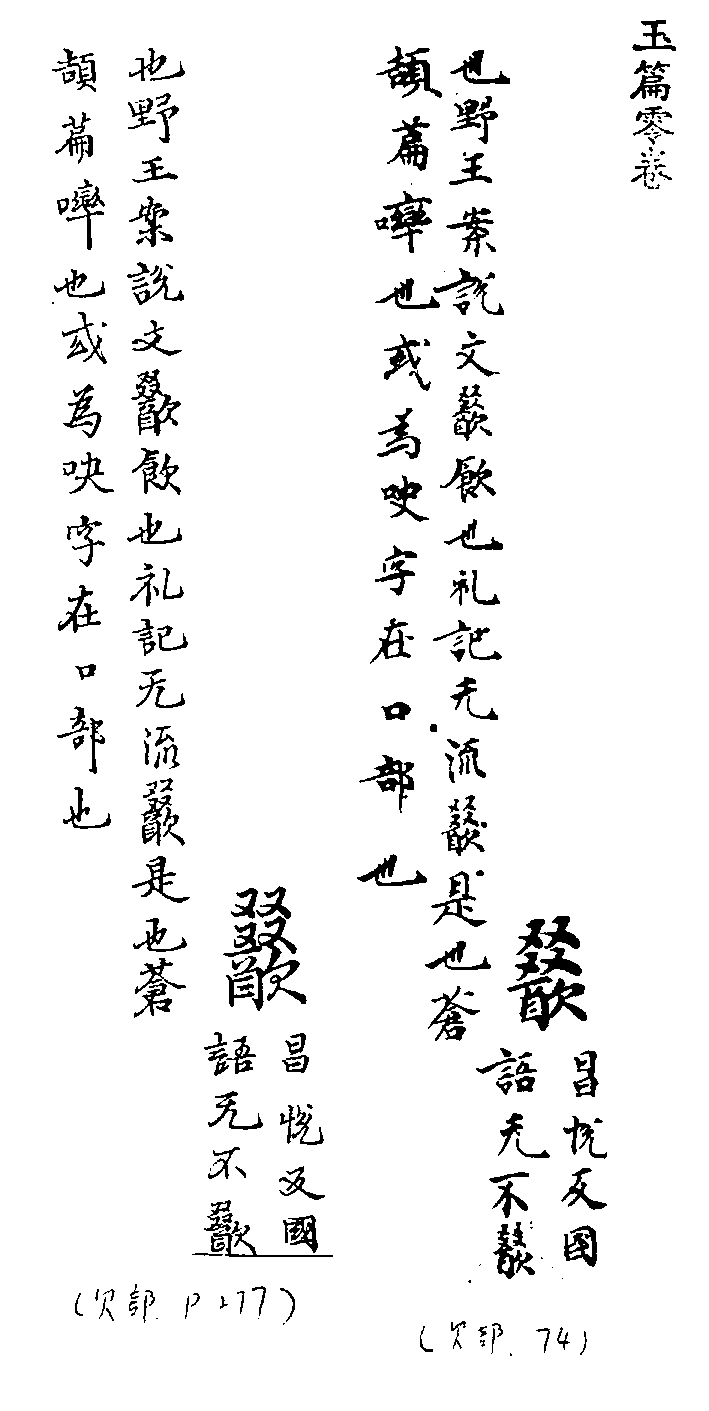 玉篇零卷
歠
昌悅反國
語无不歠
也野王案說文歠飲也礼記无流歠是也蒼
頡篇也或為吷字在口部也
(欠部. 74)
歠
昌悅反國
語无不歠
也野王案說文歠飲也礼記无流歠是也蒼
頡篇也或為吷字在口部也
(欠部. P 277)